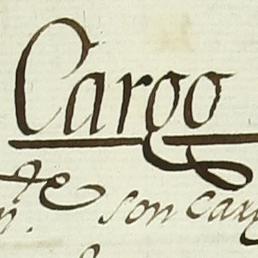 Cargo
te
n. son car